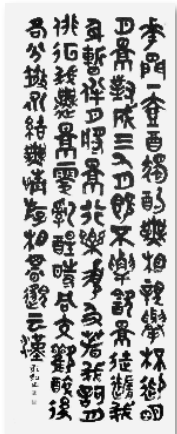 花間一壺酒獨酌無相親舉杯邀明
月景對成三人月既不解飲景徒隨我
身暫伴月將景行樂須及春我歌月
徘徊我舞景零亂醒時同交歡醉後
各分散永結無情遊相期邈云漢